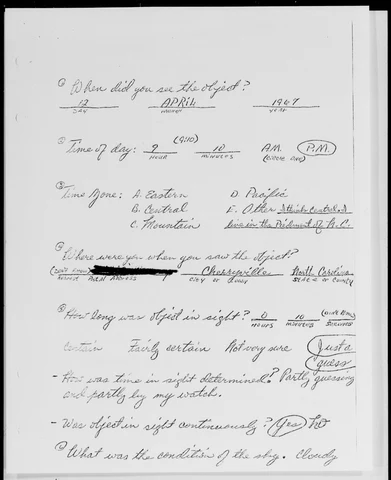 ① When did you see the object?
12 APRIL 1967
DAY MONTH YEAR
② Time of day: 9 (9:10) 10 A.M. P.M.
HOUR MINUTES (CIRCLE ONE)
③ Time Zone: A. Eastern D. Pacific
B. Central E. Other I think Central. I
C. Mountain live in the Piedmont of N.C.
④ Where were you when you saw the object?
(Don't know) Cherryville North Carolina
NEAREST POSTAL ADDRESS CITY OR TOWN STATE OR COUNTY
⑤ How long was object in sight? 0 10
HOURS MINUTES SECONDS
Certain Fairly certain Not very sure Just a
guess
- How was time in sight determined? Partly guessing
and partly by my watch.
- Was object in sight continuously? Yes No
What was the condition of the sky. Cloudy